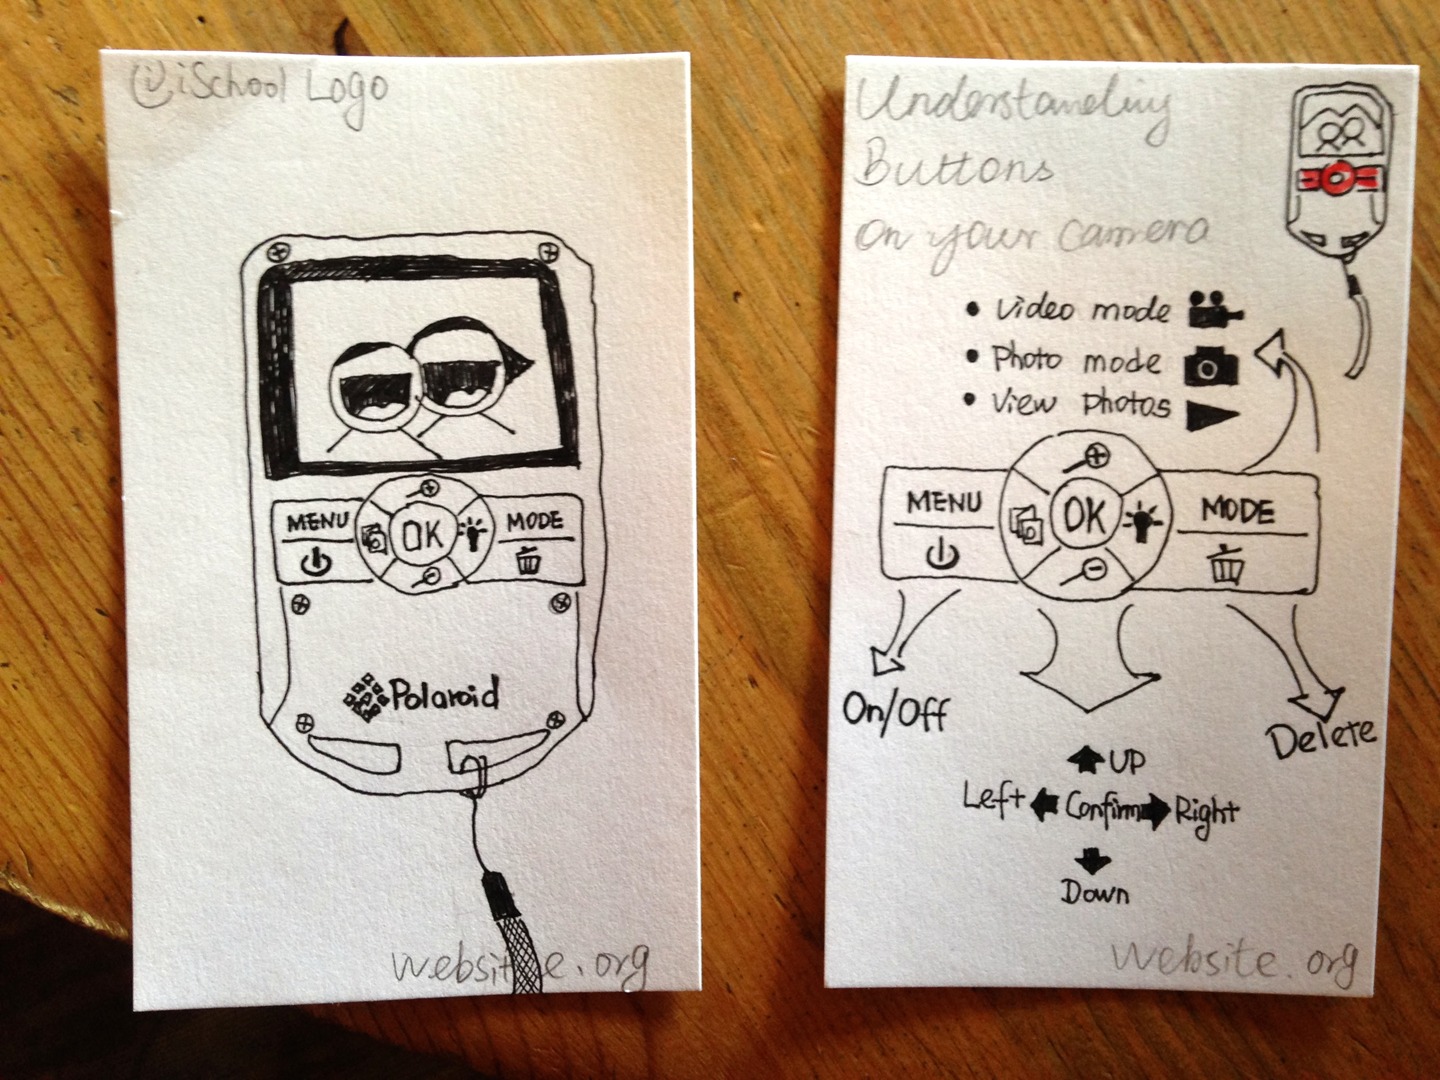 iSchool Logo
MENU
OK
MODE
Polaroid
website.org
Understanding
Buttons
on your camera
• Video mode
• Photo mode
• View photos
MENU
OK
MODE
On/Off
Delete
UP
Left Confirm Right
Down
website.org